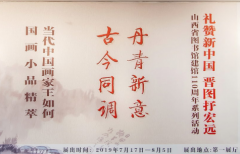 礼赞新中国 晋图抒宏远
山西省图书馆建馆110周年系列活动
丹青新意
古今同调
当代中国画家王如何
国画小品精萃
展出时间：2019年7月17日—8月5日
展出地点：第一展厅